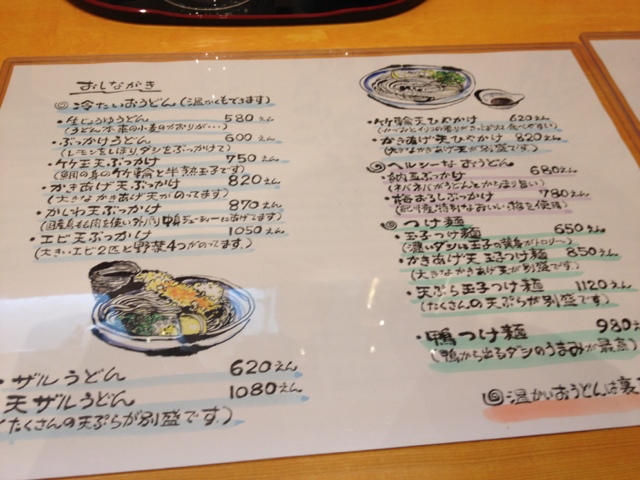 おしながき
◎冷たいおうどん(温かくもできます)
・生じょうゆうどん 580えん
(うどん本来の小麦のかおりが・・・)
・ぶっかけうどん 600えん
(レモンをしぼりダシをぶっかけて)
・竹玉天ぶっかけ 750えん
(鯛の身の竹輪と半熟玉子です)
・かきあげ天ぶっかけ 820えん
(大きなかきあげ天がのってます)
・かしわ天ぶっかけ 870えん
・エビ天ぶっかけ 1050えん
(大きいエビ2匹と野菜4つがのってます。)
・ザルうどん 620えん
天ザルうどん 1080えん
(たくさんの天ぷらが別盛です。)
・竹輪天ひやかけ 620えん
・かきあげ天ひやかけ 820えん
(大きなかきあげ天が別盛です)
◎ヘルシーなおうどん
・納豆ぶっかけ 680えん
(ネバネバがうどんとからまり旨い)
・梅おろしぶっかけ 780えん
(紀州産特別なおいしい梅を使用)
◎つけ麺
・玉子つけ麺 650えん
(濃いダシと玉子の黄身がトロリー)
・かきあげ天玉子つけ麺 850えん
(大きなかきあげ天が別盛です。)
・天ぷら玉子つけ麺 1120えん
(たくさんの天ぷらが別盛です)
・鴨つけ麺 980えん
(鴨から出るダシのうまみが最高)
◎温かいおうどんは裏